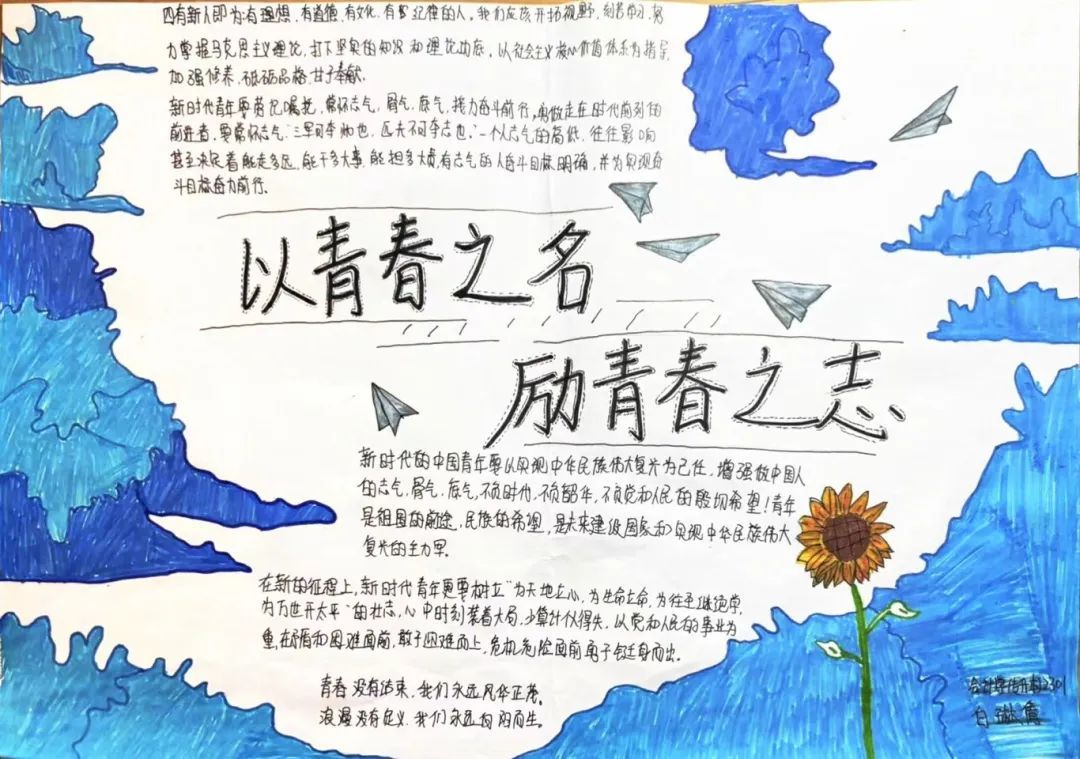 四有新人即为:有理想,有道德,有文化,有纪律的人。我们应该开拓视野,刻苦学习,努
力掌握马克思主义理论,打下坚实的知识和理论功底,以社会主义核心价值体系为指导,
加强修养,砥砺品格,甘于奉献.
新时代青年要苗记嘱托,常怀志气,骨气,底气,接力奋斗前行,勇做走在时代前列的
前进者.要常怀志气."三军可夺帅也,匹夫不可夺志也."一个人志气的高低,往往影响
甚至决定着能走多远,能干多大事,能担多大责,有志气的人奋斗目标明确,并为实现奋
斗目标奋力前行.
以青春之名
励青春之志
新时代的中国青年要以实现中华民族伟大复兴为己任,增强做中国人
的志气,骨气,底气,不负时代,不负韶年,不负党和人民的殷切希望!青年
是祖国的前途,民族的希望,是未来建设国家和实现中华民族伟大
复兴的主力军.
在新的征程上,新时代青年更要树立"为天地立心,为生命立命,为往圣继绝学,
为万世开太平"的壮志,心中时刻装着大局,少算计个人得失,以党和人民的事业为
重,在矛盾和困难面前,敢于迎难而上,危机危险面前勇于挺身而出.
青春没有结束,我们永远风华正茂.
浪漫没有定义,我们永远向阳而生.
会计2301
白